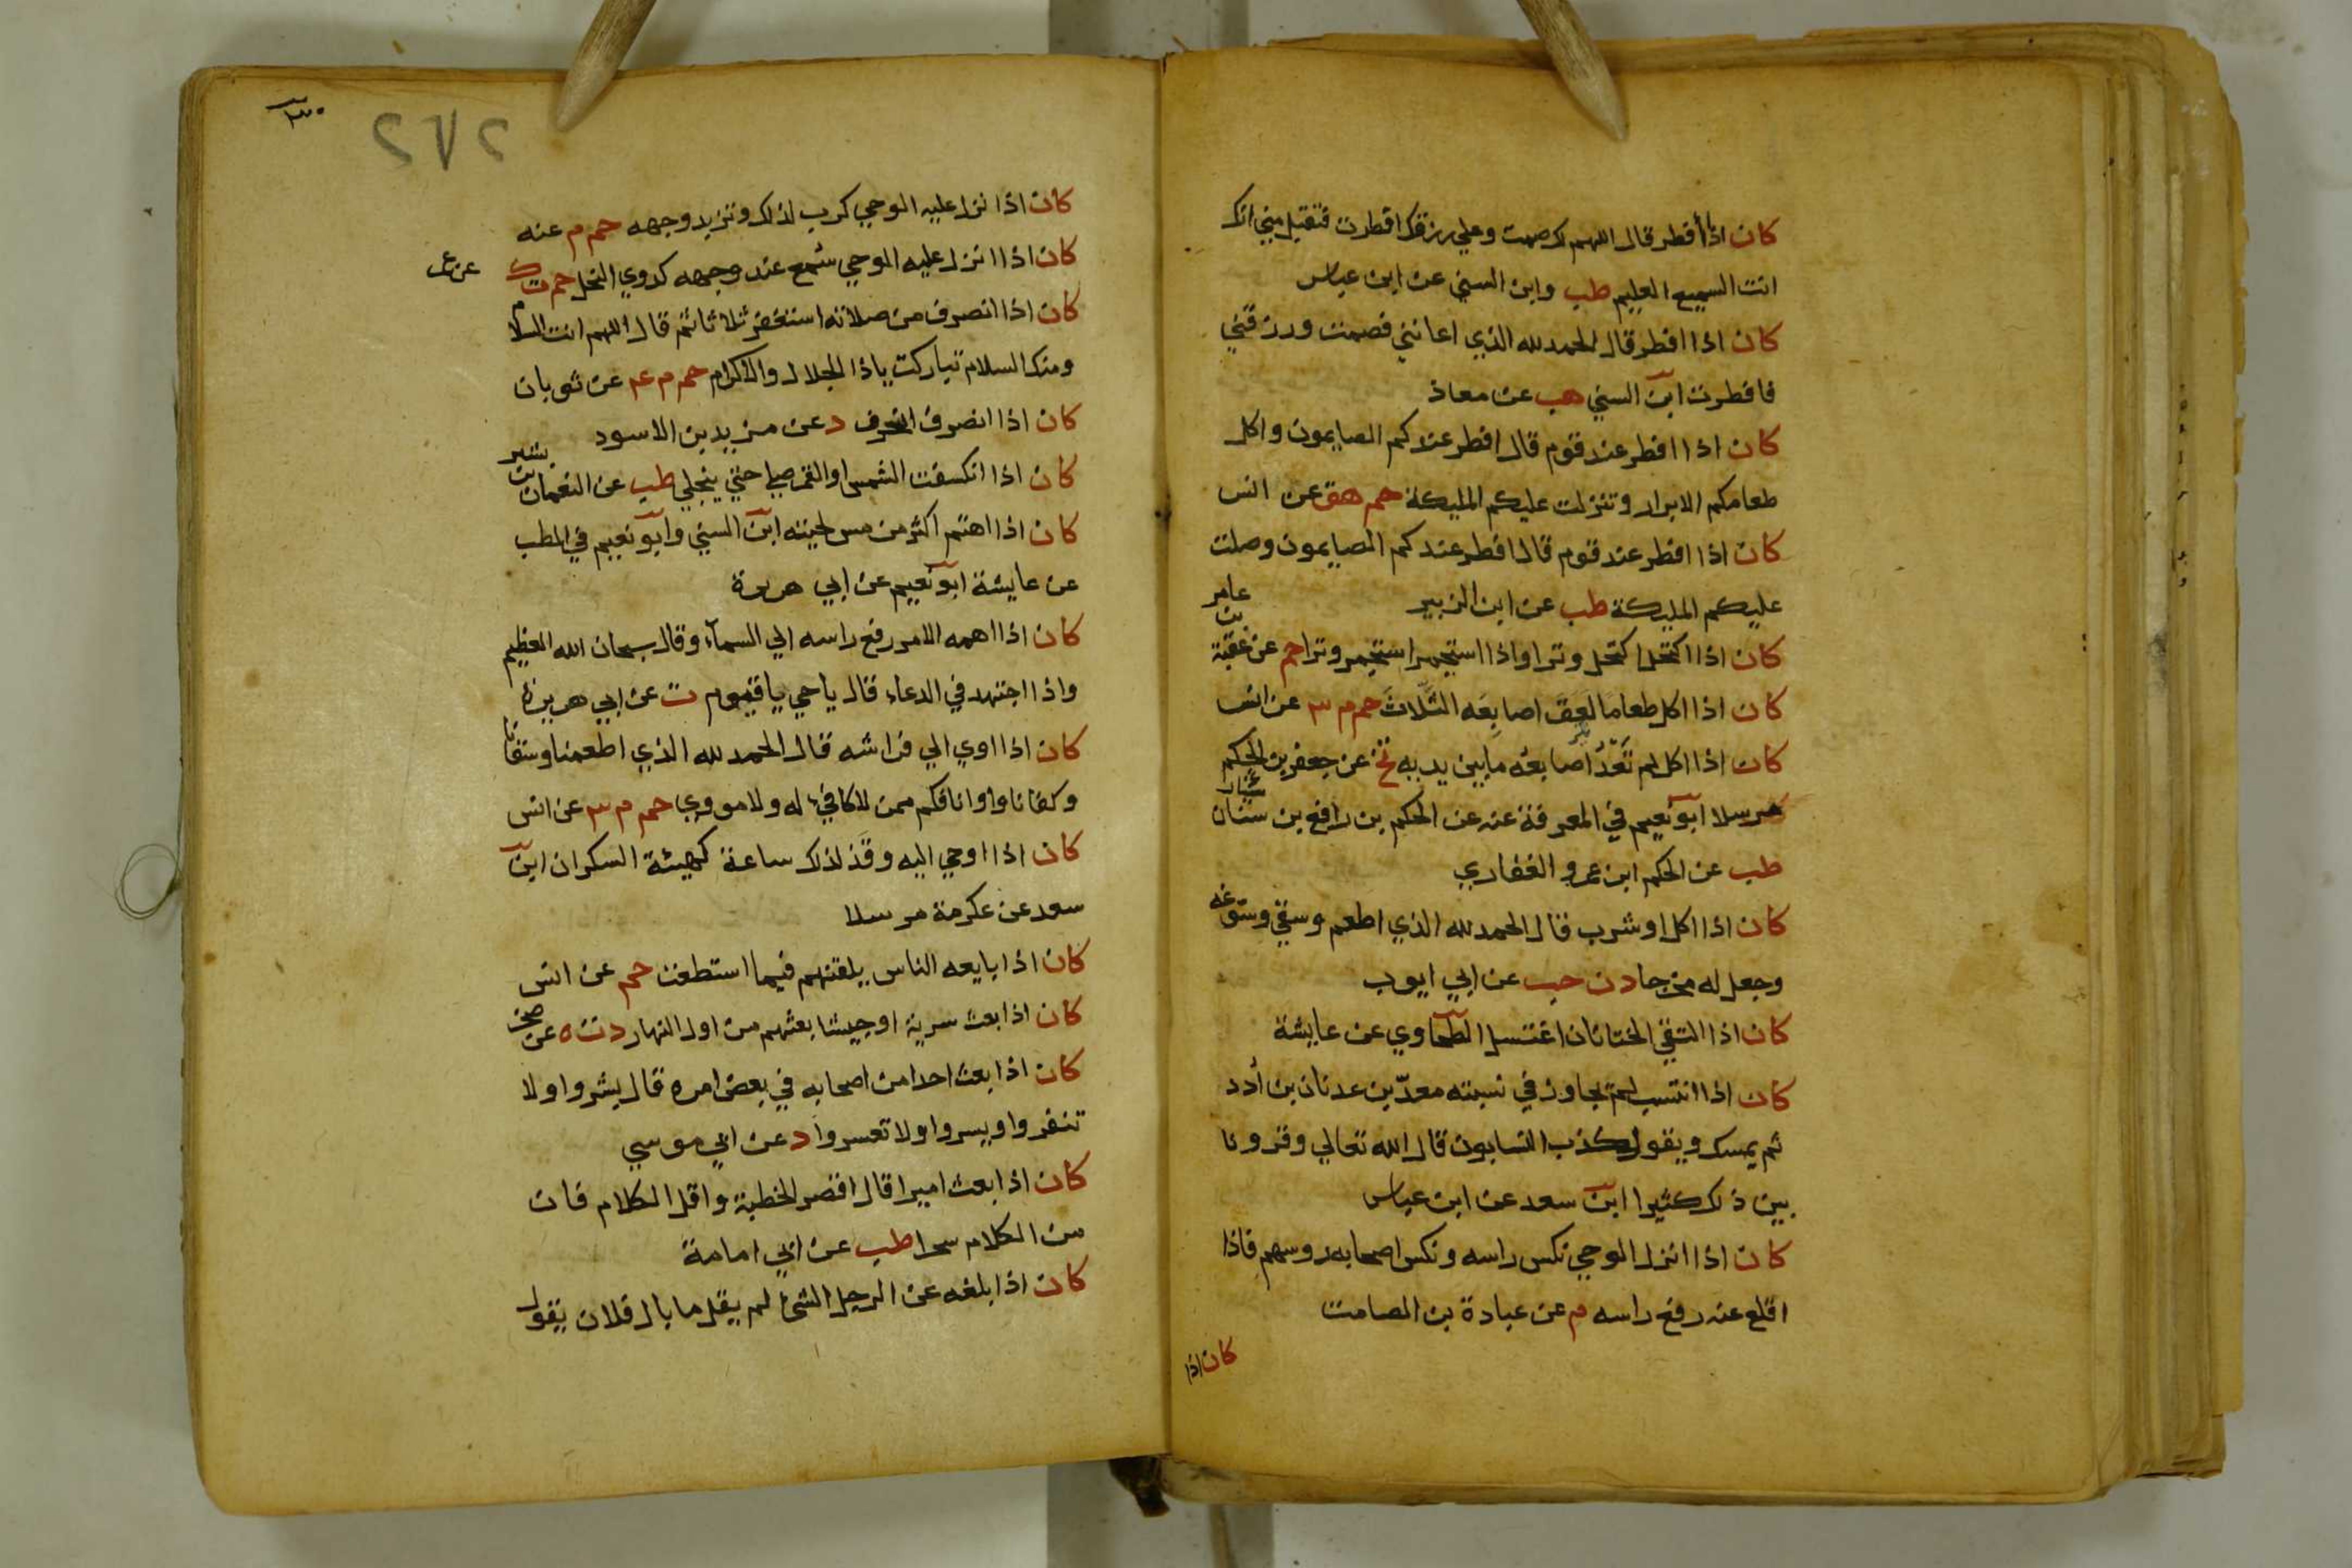 كان اذا أفطر قال اللهم لك صمت وعلي رزقك افطرت فتقبل مني انك
انت السميع العليم طب وابن السني عن ابن عباس
كان اذا افطر قال الحمد لله الذي اعانني فصمت ورزقني
فافطرت ابن السني هب عن معاذ
كان اذا افطر عند قوم قال افطر عندكم الصايمون واكل
طعامكم الابرار وتنزلت عليكم المليكة حم هق عن انس
كان اذا افطر عند قوم قال افطر عندكم الصايمون وصلت
عليكم المليكة طب عن ابن الزبير
كان اذا اكتحل اكتحل وترا واذا استجمر استجمر وترا حم عن عقبة بن عامر
كان اذا اكل طعاما لعق اصابعه الثلاث حم م ٣ عن انس
كان اذا اكل لم تعد اصابعه ما بين يديه تخ عن جعفر بن الحكم
مرسلا ابو نعيم في المعرفة عنه عن الحكم بن رافع بن سنان
طب عن الحكم ابن عمرو الغفاري
كان اذا اكل او شرب قال الحمد لله الذي اطعم وسقي وسوغه
وجعل له مخرجا د ن حب عن ابي ايوب
كان اذا التقي الختانان اغتسل الطحاوي عن عايشة
كان اذا انتسب لم يجاوز في نسبته معدّ بن عدنان بن أدد
ثم يمسك ويقول كذب النسابون قال الله تعالي وقرونا
بين ذلك كثيرا ابن سعد عن ابن عباس
كان اذا انزل الوحي نكس راسه ونكس اصحابه روسهم فاذا
اقلع عنه رفع راسه م عن عبادة بن الصامت
كان اذا
٢٧٢
كان اذا نزل عليه الوحي كرب لذلك وتربد وجهه حم م عنه
كان اذا انزل عليه الوحي سُمع عند وجهه كدوي النحل حم ت ك عن عمر
كان اذا انصرف من صلاته استغفر ثلاثا ثم قال اللهم انت السلام
ومنك السلام تباركت ياذا الجلال والاكرام حم م عه عن ثوبان
كان اذا انصرف انحرف د عن يزيد بن الاسود
كان اذا انكسفت الشمس او القمر صلي حتي ينجلي طب عن النعمان بن بشير
كان اذا اهتم اكثر من مس لحيته ابن السني وابو نعيم في الطب
عن عايشة ابو نعيم عن ابي هريرة
كان اذا اهمه الامر رفع راسه الي السمآء وقال سبحان الله العظيم
واذا اجتهد في الدعاء قال ياحي ياقيوم ت عن ابي هريرة
كان اذا اوي الي فراشه قال الحمد لله الذي اطعمنا وسقانا
وكفانا واوانا فكم ممن لا كافي له ولا مووي حم م ٣ عن انس
كان اذا اوحي اليه وقذ لذلك ساعة كهيئة السكران ابن
سعد عن عكرمة مرسلا
كان اذا بايعه الناس يلقنهم فيما استطعت حم عن انس
كان اذا بعث سرية او جيشا بعثهم من اول النهار د ت ه عن صخر
كان اذا بعث احدا من اصحابه في بعض امره قال بشروا ولا
تنفروا ويسروا ولا تعسروا د عن ابي موسي
كان اذا بعث اميرا قال اقصر الخطبة واقل الكلام فان
من الكلام سحرا طب عن ابي امامة
كان اذا بلغه عن الرجل الشئ لم يقل ما بال فلان يقول